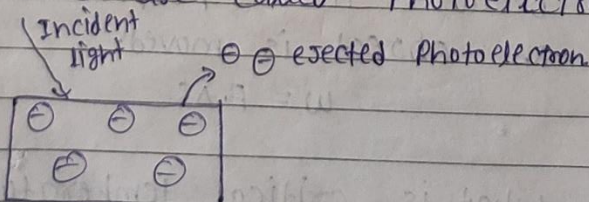 Incident
light
⊖ ⊖ ejected Photoelectron
⊖ ⊖ ⊖
⊖ ⊖